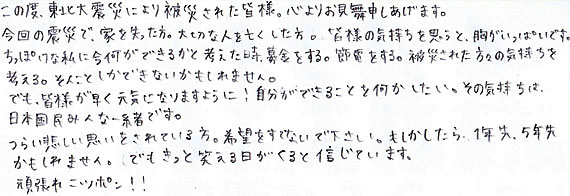 この度、東北大震災により被災された皆様。心よりお見舞申しあげます。
今回の震災で、家を失った方。大切な人を亡くした方。皆様の気持ちを思うと、胸がいっぱいです。
ちっぽけな私に今何ができるかと考えた時、募金をする。節電をする。被災された方々の気持ちを
考える。そんことしかできないかもしれません。
でも、皆様が早く元気になりますように！自分ができることを何かしたい。その気持ちは、
日本国民みんな一緒です。
つらい悲しい思いをされている方。希望をすてないで下さい。もしかしたら、1年先、5年先
かもしれません。でもきっと笑える日がくると信じています。
頑張れニッポン！！